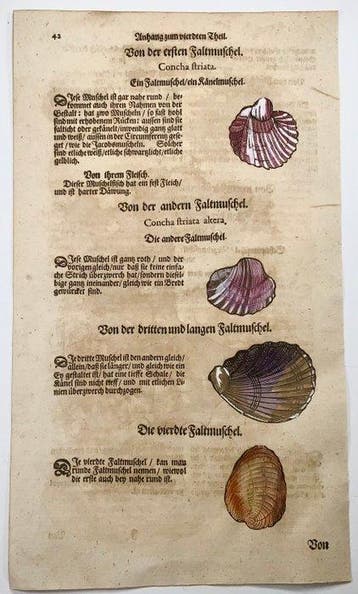 42
Anhang zum vierdten Theil.
Von der ersten Faltmuschel.
Concha striata.
Ein Faltmuschel/ein Känelmuschel.
Diese Muschel ist gar nahe rund / be-
kommet auch ihren Nahmen von der
Gestalt: hat zwo Muscheln / so fast hohl
sind mit erhobenen Rücken: aussen sind sie
fälticht oder gekänelt/inwendig gantz glatt
und weiß / aussen in der Circumferentz gese-
get / wie die Jacobsmuscheln. Solcher
sind etliche weiß/etliche schwartzlicht/etliche
gelblich.
Von ihrem Fleisch.
Dieser Muschelfisch hat ein fest Fleisch/
und ist harter Däwung.
Von der andern Faltmuschel.
Concha striata altera.
Die andere Faltmuschel.
Diese Muschel ist gantz roth / und der
vorigen gleich/nur daß sie keine einfa-
che Strich überzwerch hat/sondern diesel-
bige gantz ineinander/gleich wie ein Bredt
gewürcket sind.
Von der dritten und langen Faltmuschel.
Die dritte Muschel ist den andern gleich/
allein/daß sie länger/und gleich wie ein
Ey gestaltet ist/ hat eine tieffe Schale/ die
Känel sind nicht tieff/ und mit etlichen Li-
nien überzwerch durchzogen.
Die vierdte Faltmuschel.
Die vierdte Faltmuschel / kan man
runde Faltmuschel nennen / wiewol
die erste auch bey nahe rund ist.
Von